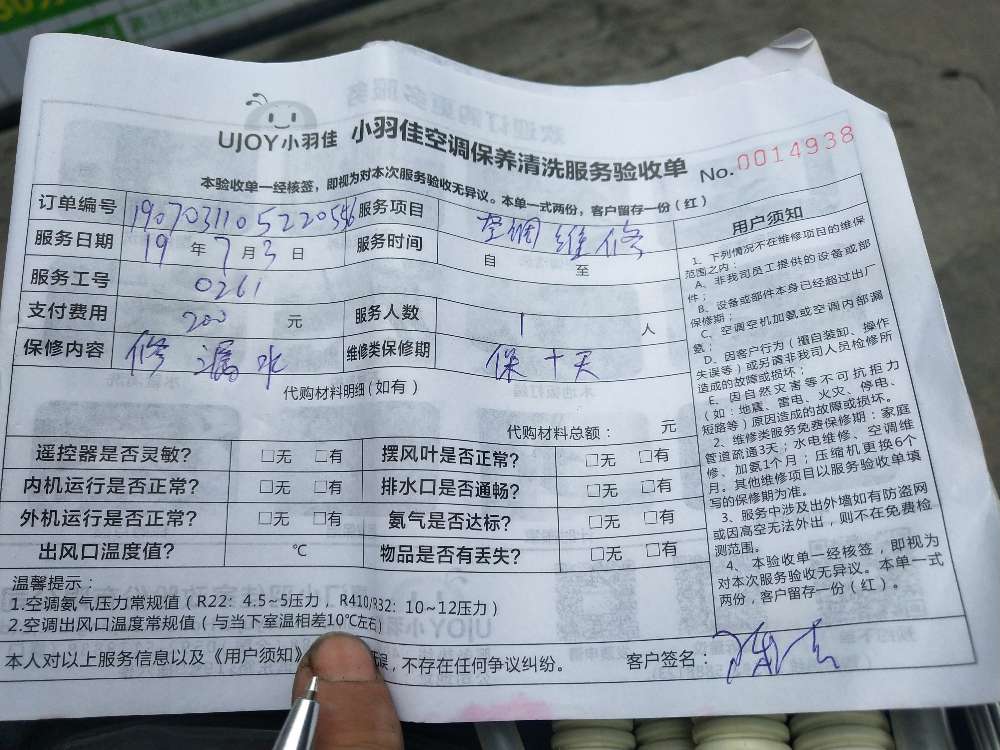 UJOY小羽佳 小羽佳空调保养清洗服务验收单 No.0014938
本验收单一经核签，即视为对本次服务验收无异议。本单一式两份，客户留存一份（红）
订单编号 服务项目 空调维修
服务日期 19年7月3日 服务时间 自 至
服务工号 0261
支付费用 200元 服务人数 1人
保修内容 修漏水 维修类保修期 保十天
代购材料明细（如有）
代购材料总额： 元
遥控器是否灵敏? □无 □有 摆风叶是否正常? □无 □有
内机运行是否正常? □无 □有 排水口是否通畅? □无 □有
外机运行是否正常? □无 □有 氨气是否达标? □无 □有
出风口温度值? ℃ 物品是否有丢失? □无 □有
温馨提示：
1.空调氨气压力常规值（R22：4.5~5压力，R410/R32：10~12压力）
2.空调出风口温度常规值（与当下室温相差10℃左右）
本人对以上服务信息以及《用户须知》 误，不存在任何争议纠纷。 客户签名：
用户须知
1、下列情况不在维修项目的维保
范围之内：
A、非我司员工提供的设备或部
件；
B、设备或部件本身已经超过出厂
保修期；
C、空调空机加氨或空调内部漏
氨；
D、因客户行为（擅自装卸、操作
失误等）或另请非我司人员检修所
造成的故障或损坏；
E、因自然灾害等不可抗拒力
（如：地震、雷电、火灾、停电、
短路等）原因造成的故障或损坏。
2、维修类服务免费保修期：家庭
管道疏通3天；水电维修、空调维
修、加氨1个月；压缩机更换6个
月。其他维修项目以服务验收单填
写的保修期为准。
3、服务中涉及出外墙如有防盗网
或因高空无法外出，则不在免费检
测范围。
4、本验收单一经核签，即视为
对本次服务验收无异议。本单一式
两份，客户留存一份（红）。